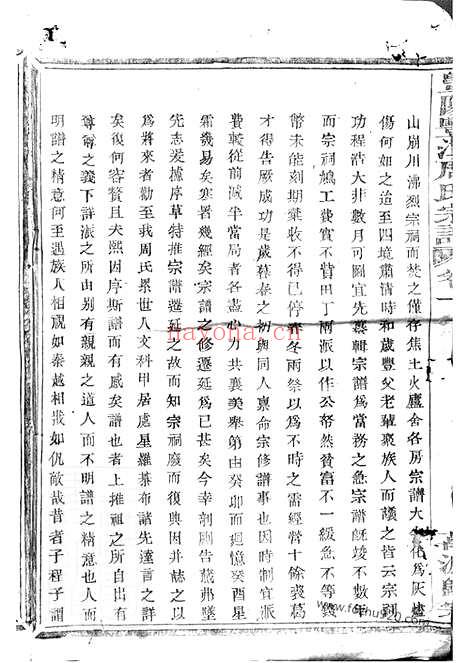 山崩川沸烈宗祠而焚之僅存焦土火廬舍各房宗譜大化為灰燼
傷何如之迨至四境肅清時和歲豐父老輩聚族人而議之皆云宗
功程浩大非數月可圖宜先纂輯宗譜為當務之急宗譜既竣不數年
而宗祠鳩工費實不貲田丁兩派以作公帑然貧富不一緩急不等幾
幣未能刻期藁收不得已停乎冬雨祭以不時之需經營十餘裘葛
才得告厥成功是歲暮春之初與同人稟命宗修譜事也因時制宜派
費較從前減半當局者各盡力共襄美舉第由癸卯而迴憶癸酉星
霜幾易矣寒暑幾經矣宗譜之修遷延為已甚矣今幸剞劂告蕆弗墜
先志爰援序草特推宗譜遷延之故而知宗祠廢而復興因并誌之以
為將來者勸至我周氏累世人文科甲居處星羅棊布諸先達言之詳
矣復何容贅且夫熙因序斯譜而有感矣譜也者上推祖之所自出有
尊尊之義下詳派之所由別有親親之道人而不明譜之精意也人而
明譜之精意何至遇族人相視如秦越相戕如仇敵哉昔者子程子謂
nayona.cn